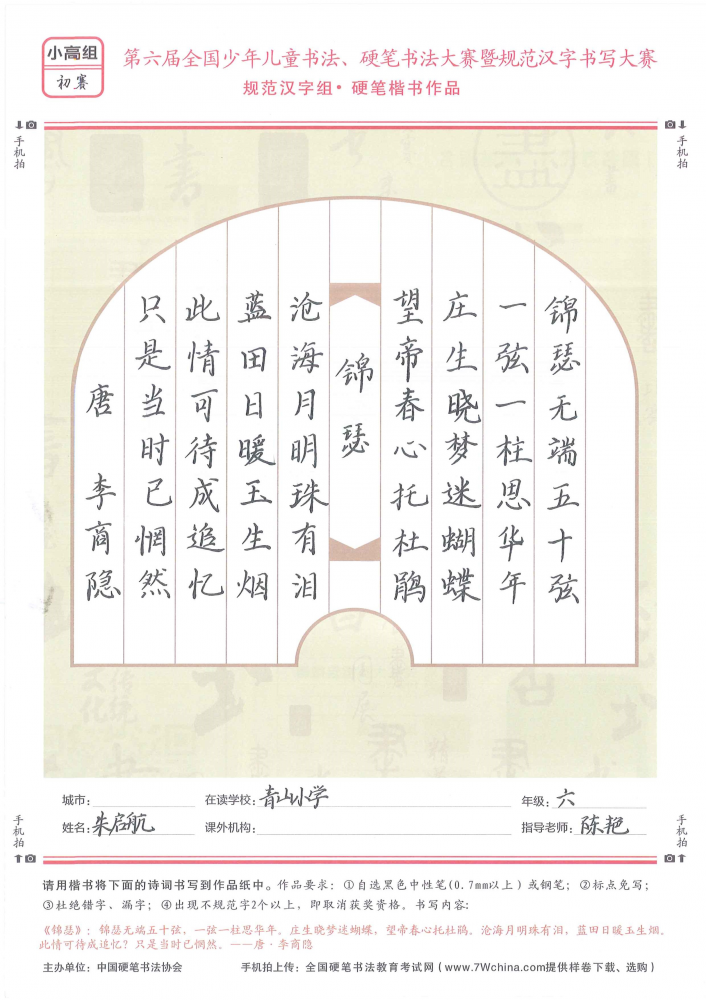 小高组
初赛
第六届全国少年儿童书法、硬笔书法大赛暨规范汉字书写大赛
规范汉字组·硬笔楷书作品
手机拍
手机拍
锦瑟无端五十弦
一弦一柱思华年
庄生晓梦迷蝴蝶
望帝春心托杜鹃
锦瑟
沧海月明珠有泪
蓝田日暖玉生烟
此情可待成追忆
只是当时已惘然
唐 李商隐
城市:
在读学校:青山小学
年级:六
姓名:朱启航
课外机构:
指导老师:陈艳
手机拍
手机拍
请用楷书将下面的诗词书写到作品纸中。作品要求:①自选黑色中性笔(0.7mm以上)或钢笔;②标点免写;
③杜绝错字、漏字;④出现不规范字2个以上,即取消获奖资格。书写内容:
《锦瑟》:锦瑟无端五十弦,一弦一柱思华年。庄生晓梦迷蝴蝶,望帝春心托杜鹃。沧海月明珠有泪,蓝田日暖玉生烟。
此情可待成追忆?只是当时已惘然。——唐·李商隐
主办单位:中国硬笔书法协会
手机拍上传:全国硬笔书法教育考试网(www.7Wchina.com提供样卷下载、选购)